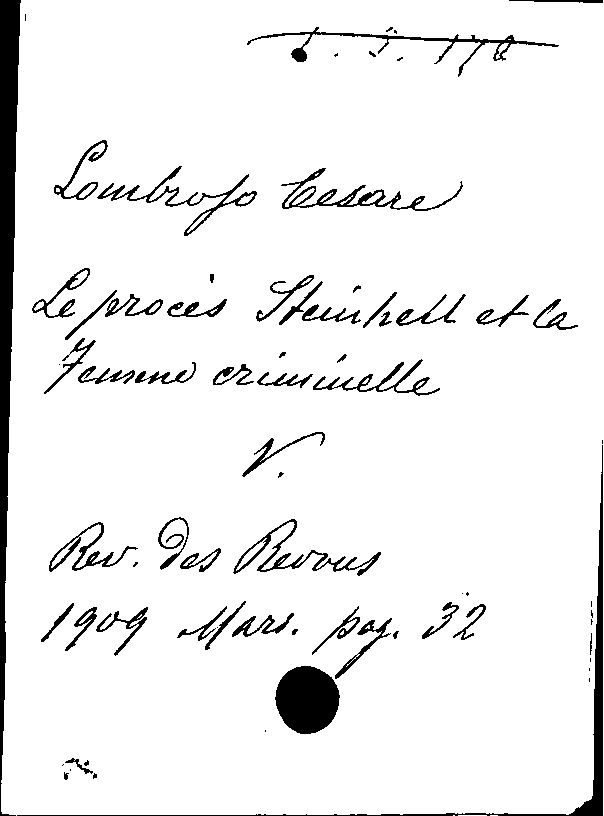 Lombroso Cesare
Le procès Steinheil et la
Femme criminelle
V.
Rev. des Revues
1909 Mars. pag. 32